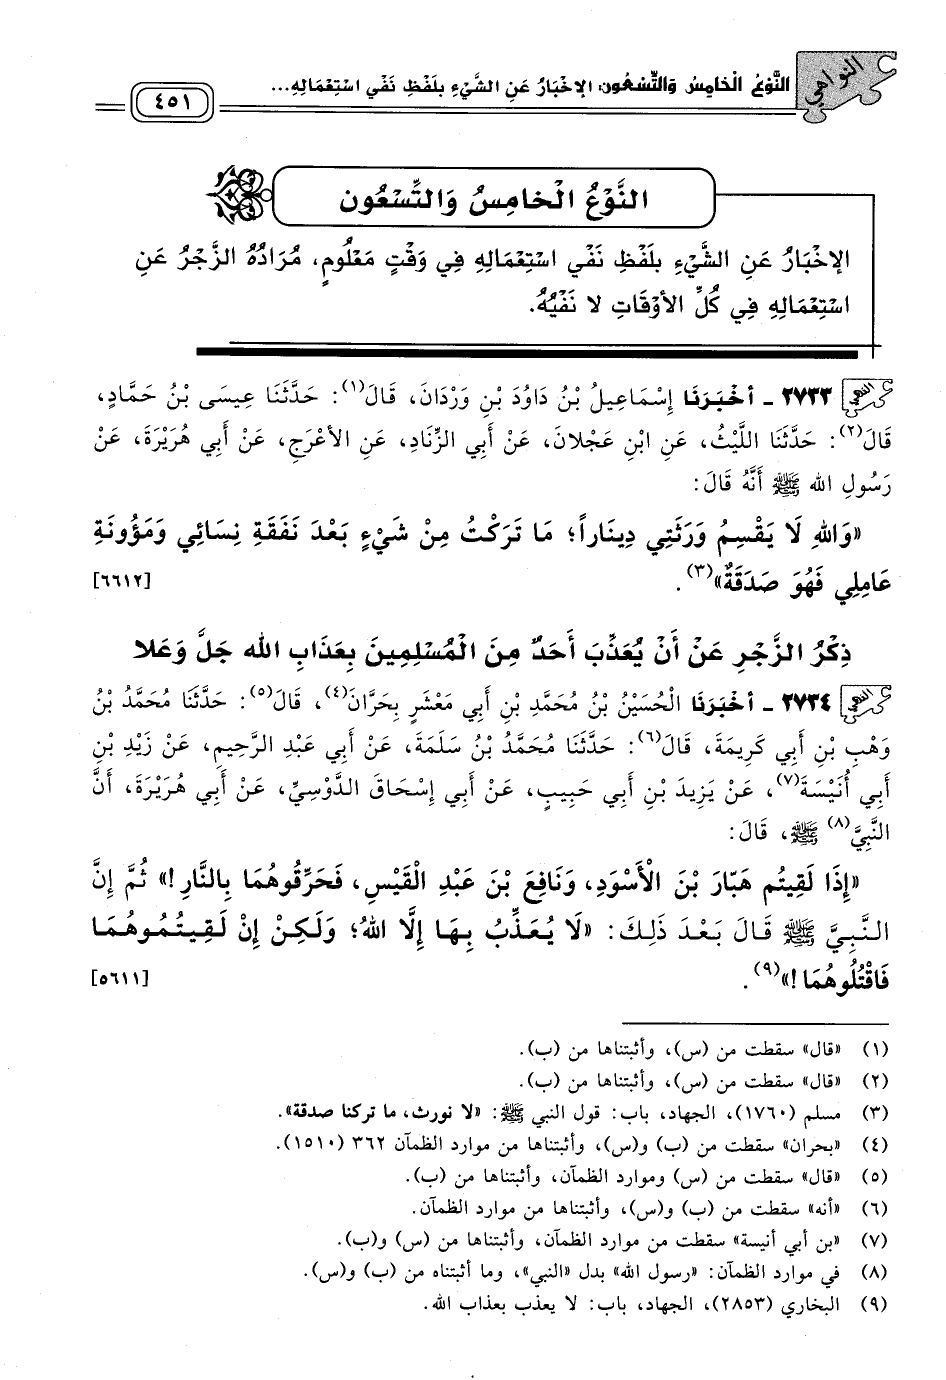 النواهي
النَّوْعُ الْخَامِسُ وَالتِّسْعُون: الإخْبَارُ عَنِ الشَّيْءِ بِلَفْظِ نَفْيِ اسْتِعْمَالِهِ...
٤٥١
النَّوْعُ الْخَامِسُ وَالتِّسْعُون
الإخْبَارُ عَنِ الشَّيْءِ بِلَفْظِ نَفْيِ اسْتِعْمَالِهِ فِي وَقْتٍ مَعْلُومٍ، مُرَادُهُ الزَّجْرُ عَنِ
اسْتِعْمَالِهِ فِي كُلِّ الأوْقَاتِ لا نَفْيُهُ.
النهي ٢٧٣٣ - أخْبَرَنَا إسْمَاعِيلُ بْنُ دَاوُدَ بْنِ وَرْدَانَ، قَالَ(١): حَدَّثَنَا عِيسَى بْنُ حَمَّادٍ،
قَالَ(٢): حَدَّثَنَا اللَّيْثُ، عَنِ ابْنِ عَجْلانَ، عَنْ أبِي الزِّنَادِ، عَنِ الأعْرَجِ، عَنْ أبِي هُرَيْرَةَ، عَنْ
رَسُولِ الله ﷺ أنَّهُ قَالَ:
«وَاللهِ لَا يَقْسِمُ وَرَثَتِي دِينَاراً؛ مَا تَرَكْتُ مِنْ شَيْءٍ بَعْدَ نَفَقَةِ نِسَائِي وَمَؤُونَةِ
عَامِلِي فَهُوَ صَدَقَةٌ»(٣). [٦٦١٢]
ذِكْرُ الزَّجْرِ عَنْ أنْ يُعَذَّبَ أحَدٌ مِنَ الْمُسْلِمِينَ بِعَذَابِ الله جَلَّ وَعَلا
النهي ٢٧٣٤ - أخْبَرَنَا الْحُسَيْنُ بْنُ مُحَمَّدِ بْنِ أبِي مَعْشَرٍ بِحَرَّانَ(٤)، قَالَ(٥): حَدَّثَنَا مُحَمَّدُ بْنُ
وَهْبِ بْنِ أبِي كَرِيمَةَ، قَالَ(٦): حَدَّثَنَا مُحَمَّدُ بْنُ سَلَمَةَ، عَنْ أبِي عَبْدِ الرَّحِيمِ، عَنْ زَيْدِ بْنِ
أبِي أُنَيْسَةَ(٧)، عَنْ يَزِيدَ بْنِ أبِي حَبِيبٍ، عَنْ أبِي إسْحَاقَ الدَّوْسِيِّ، عَنْ أبِي هُرَيْرَةَ، أنَّ
النَّبِيَّ(٨) ﷺ، قَالَ:
«إذَا لَقِيتُم هَبَّارَ بْنَ الْأسْوَدِ، وَنَافِعَ بْنَ عَبْدِ الْقَيْسِ، فَحَرِّقُوهُمَا بِالنَّارِ!» ثُمَّ إنَّ
النَّبِيَّ ﷺ قَالَ بَعْدَ ذَلِكَ: «لَا يُعَذِّبُ بِهَا إلَّا اللهُ؛ وَلَكِنْ إنْ لَقِيتُمُوهُمَا
فَاقْتُلُوهُمَا!»(٩). [٥٦١١]
(١) «قال» سقطت من (س)، وأثبتناها من (ب).
(٢) «قال» سقطت من (س)، وأثبتناها من (ب).
(٣) مسلم (١٧٦٠)، الجهاد، باب: قول النبي ﷺ: «لا نورث، ما تركنا صدقة».
(٤) «بحران» سقطت من (ب) و(س)، وأثبتناها من موارد الظمآن ٣٦٢ (١٥١٠).
(٥) «قال» سقطت من (س) وموارد الظمآن، وأثبتناها من (ب).
(٦) «أنه» سقطت من (ب) و(س)، وأثبتناها من موارد الظمآن.
(٧) «بن أبي أنيسة» سقطت من موارد الظمآن، وأثبتناها من (س) و(ب).
(٨) في موارد الظمآن: «رسول الله» بدل «النبي»، وما أثبتناه من (ب) و(س).
(٩) البخاري (٢٨٥٣)، الجهاد، باب: لا يعذب بعذاب الله.